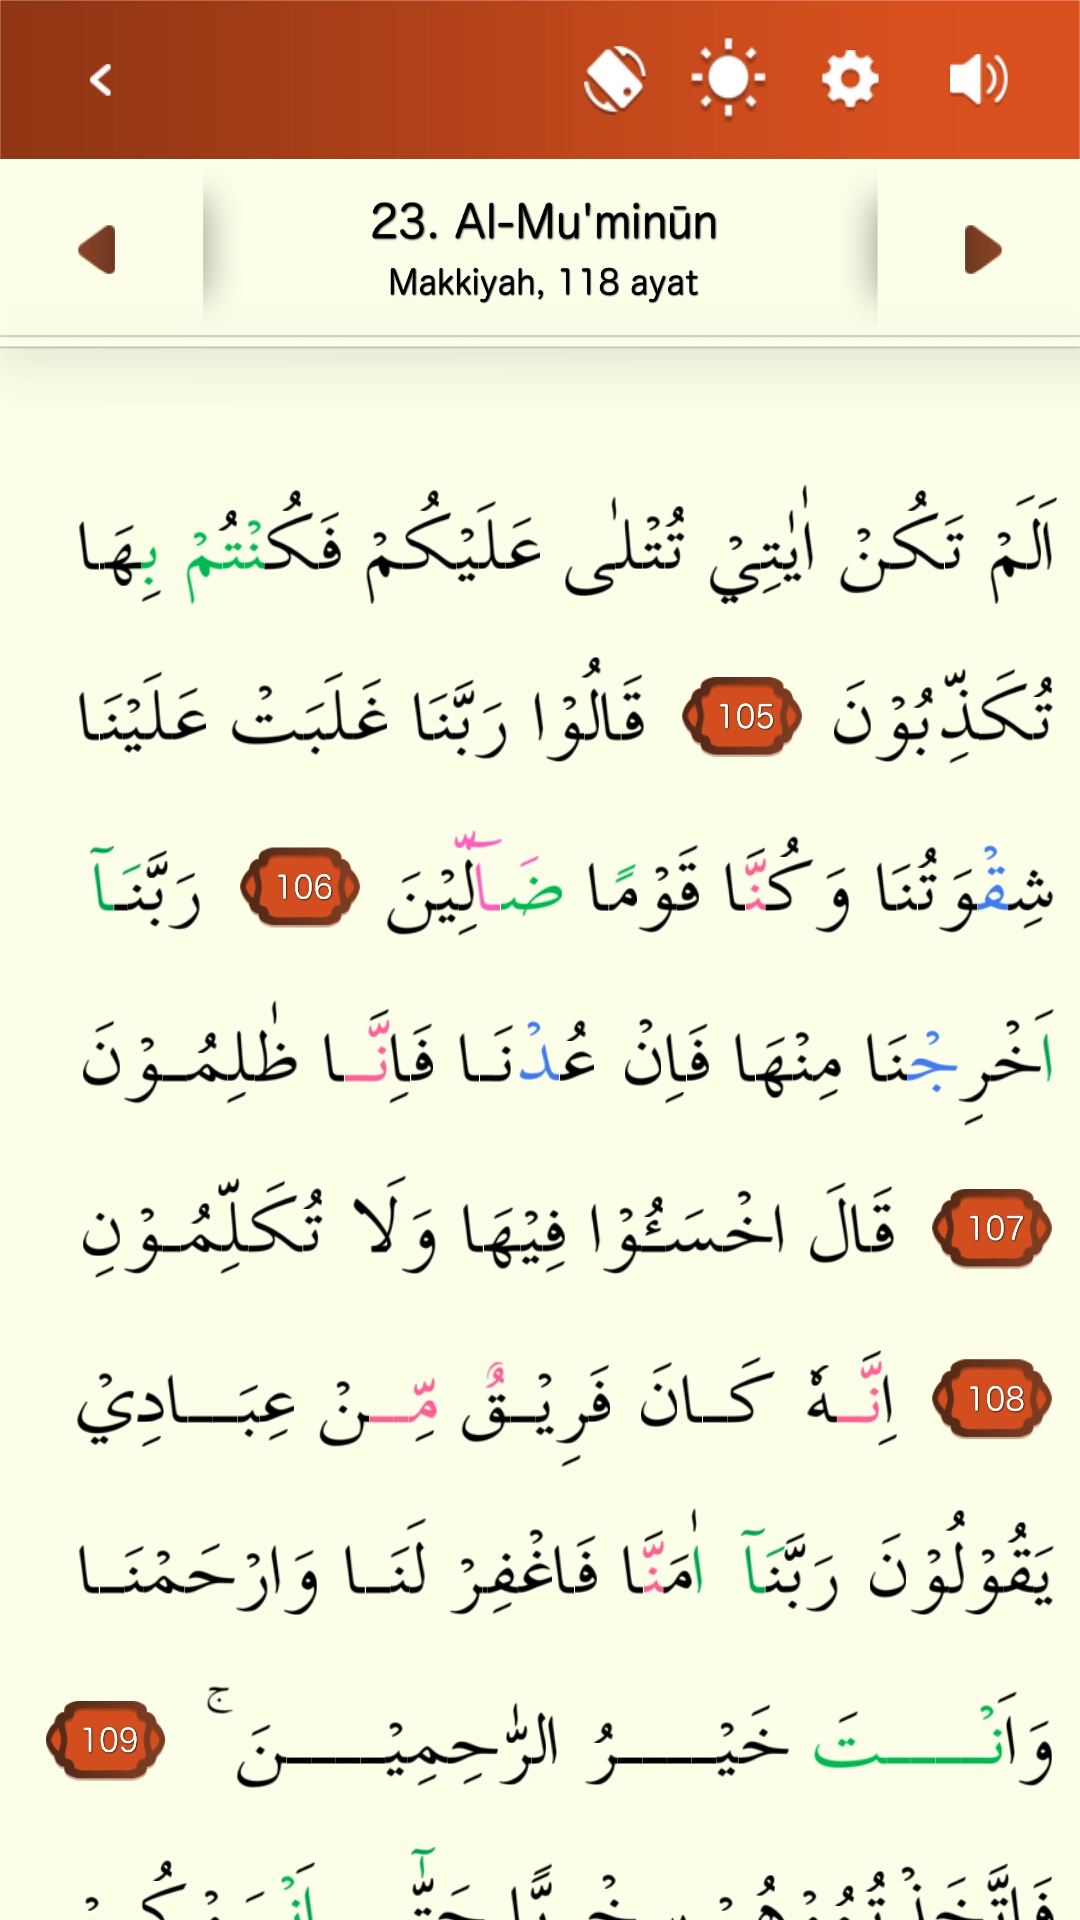 23. Al-Mu'minūn
Makkiyah, 118 ayat
اَلَمْ تَكُنْ اٰيٰتِيْ تُتْلٰى عَلَيْكُمْ فَكُنْتُمْ بِهَا
تُكَذِّبُوْنَ 105 قَالُوْا رَبَّنَا غَلَبَتْ عَلَيْنَا
شِقْوَتُنَا وَكُنَّا قَوْمًا ضَاۤلِّيْنَ 106 رَبَّنَآ
اَخْرِجْنَا مِنْهَا فَاِنْ عُدْنَا فَاِنَّا ظٰلِمُوْنَ
107 قَالَ اخْسَـُٔوْا فِيْهَا وَلَا تُكَلِّمُوْنِ
108 اِنَّهٗ كَانَ فَرِيْقٌ مِّنْ عِبَادِيْ
يَقُوْلُوْنَ رَبَّنَآ اٰمَنَّا فَاغْفِرْ لَنَا وَارْحَمْنَا
وَاَنْتَ خَيْرُ الرّٰحِمِيْنَ ۚ 109